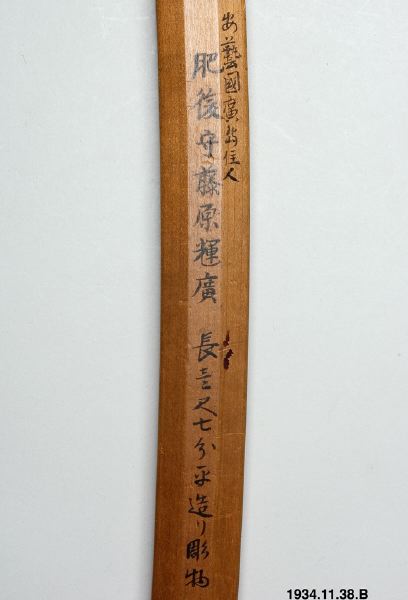 安藝國廣島住人
肥後守藤原輝廣 長壱尺七分平造リ彫物
1934.11.38.B